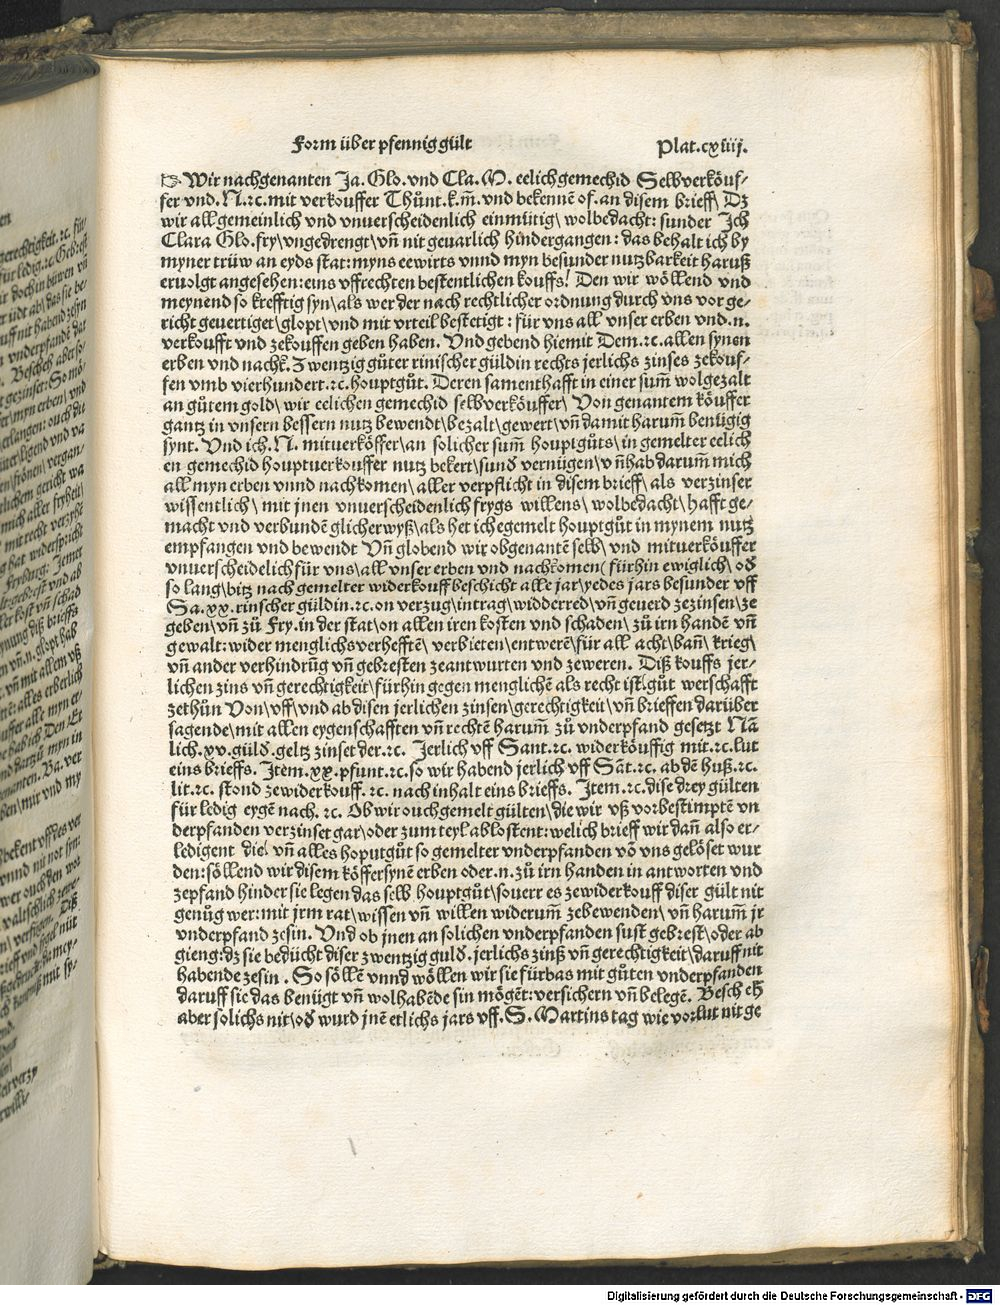 Form über pfennig gült
Plat.cxiiij.
☞ Wir nachgenanten Ja. Glo. vnd Cla. M. eelich gemechid Selbverköuf-
fer vnd. N. ⁊c. mit verkouffer Thůnt. k. m̃. vnd bekennē of. an disem brieff\ Dz
wir all gemeinlich vnd vnuerscheidenlich einmütig\ wolbedacht: sunder Jch
Clara Glo. fry\ vngedrengt\ vñ nit geuarlich hindergangen: das behalt ich by
myner trüw an eyds stat: myns eewirts vnnd myn besunder nutzbarkeit haruß
ervolgt angesehen: eins vffrechten bestentlichen kouffs! Den wir wöllend vnd
meynend so krefftig syn\ als wer der nach rechtlicher ordnung durch vns vor ge-
richt geuertiget\ glopt\ vnd mit vrteil bestetigt: für vns all vnser erben vnd. n.
verkoufft vnd zekouffen geben haben. Vnd gebend hiemit Dem. ⁊c. allen synen
erben vnd nachk̃. Zwentzig gůter rinischer güldin rechts jerlichs zinses zekouf-
fen vmb vierhundert. ⁊c. houptgůt. Deren samenthafft in einer sum̃ wolgezalt
an gůtem gold\ wir eelichen gemechid selbverköuffer\ Von genantem köuffer
gantz in vnsern bessern nutz bewendt\ bezalt\ gewert\ vñ damit harum̃ benügig
synt. Vnd ich. N. mituerköffer\ an solicher sum̃ houptgůts\ in gemelter eelich
en gemechid houptuerkouffer nutz bekert\ sund̃ vernügen\ vñ hab darum̃ mich
all myn erben vnnd nachkomen\ aller verpflicht in disem brieff\ als verzinser
wissentlich\ mit jnen vnuerscheidenlich frygs willens\ wolbedacht\ hafft ge-
macht vnd verbundē glicherwyß\ als het ich egemelt houptgůt in mynem nutz
empfangen vnd bewendt Vñ globend wir obgenantē selb\ vnd mituerköuffer
vnuerscheidelich für vns\ all vnser erben vnd nachkomen( fürhin ewiglich\ od̃
so lang\ bitz nach gemelter widerkouff beschicht alle jar\ yedes jars besunder vff
Sa. xx. rinscher güldin. ⁊c. on verzug\ intrag\ widderred\ vñ geuerd zezinsen\ ze
geben\ vñ zů Fry. in der stat\ on allen iren kosten vnd schaden\ zů irn handē vñ
gewalt: wider menglichs verhefftē\ verbieten\ entwerē\ für all acht\ bañ\ krieg\
vñ ander verhindrũg vñ gebresten zeantwurten vnd zeweren. Diß kouffs jer-
lichen zins vñ gerechtigkeit\ fürhin gegen menglichē als recht ist\ gůt werschafft
zethůn Von\ vff\ vnd ab disen jerlichen zinsen\ gerechtigkeit\ vñ brieffen darüber
sagende\ mit allen eygenschafften vñ rechtē harum̃ zů vnderpfand gesetzt Nã
lich. xv. güld̃. geltz zinset der. ⁊c. Jerlich vff Sant. ⁊c. widerköuffig mit. ⁊c. lut
eins brieffs. Jtem. xx. pfunt. ⁊c. so wir habend jerlich vff Sãt. ⁊c. ab dē huß. ⁊c.
lit. ⁊c. stond zewiderkouff. ⁊c. nach inhalt eins brieffs. Jtem. ⁊c. dise drey gülten
für ledig eygē nach. ⁊c. Ob wir ouch gemelt gülten\ die wir vß vorbestimptē vn
derpfanden verzinset gar\ oder zum teyl ablostent: welich brieff wir dañ also er-
ledigent die\ vñ alles hoputgůt so gemelter vnderpfanden vō vns gelöset wur
den: söllend wir disem köffer synē erben oder. n. zů irn handen in antworten vnd
zepfand hinder sie legen das selb houptgůt\ souerr es zewiderkouff diser gült nit
genůg wer: mit jrm rat\ wissen vñ willen widerum̃ zebewenden\ vñ harum̃ jr
vnderpfand zesin. Vnd ob jnen an solichen vnderpfanden sust gebrest\ oder ab
gieng: dz sie bedücht diser zwentzig guld̃. jerlichs zinß vñ gerechtigkeit\ daruff nit
habende zesin. So söllē vnnd wöllen wir sie fürbas mit gůten vnderpfanden
daruff sie das benügt vñ wolhabēde sin mögēt: versichern vñ belegē. Beschẽh
aber solichs nit\ od̃ wurd jnē etlichs jars vff. S. Martins tag wie vorlut nit ge
Digitalisierung gefördert durch die Deutsche Forschungsgemeinschaft - DFG